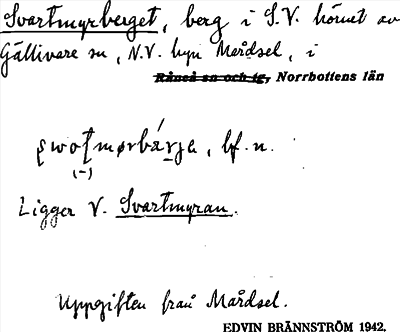 Svartmyrberget, berg i S.V. hörnet av
Gällivare sn, N.V. byn Mårdsel, i
Råneå sn och tg, Norrbottens län
bf. n.
Ligger V. Svartmyran.
Uppgiften från Mårdsel.
EDVIN BRÄNNSTRÖM 1942.